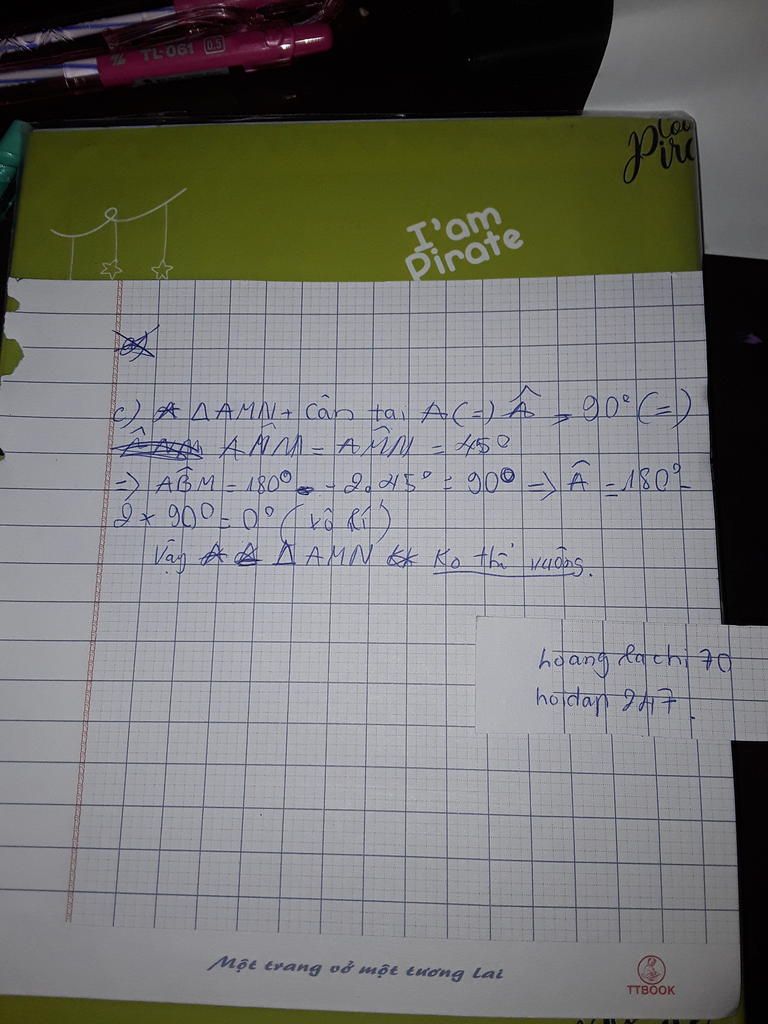 TL-061 0.5
I'am
Pirate
c) Δ AMN + cân tại A (=) Â = 90° (=)
AN̂M = AM̂N = 45°
=> AB̂M = 180° - 2.45° = 90° => Â = 180° -
2 x 90° = 0° (vô lí)
Vậy Δ AMN Ko thể vuông.
hoang lachi 70
hoidap 247.
Một trang vở một tương lai
TTBOOK